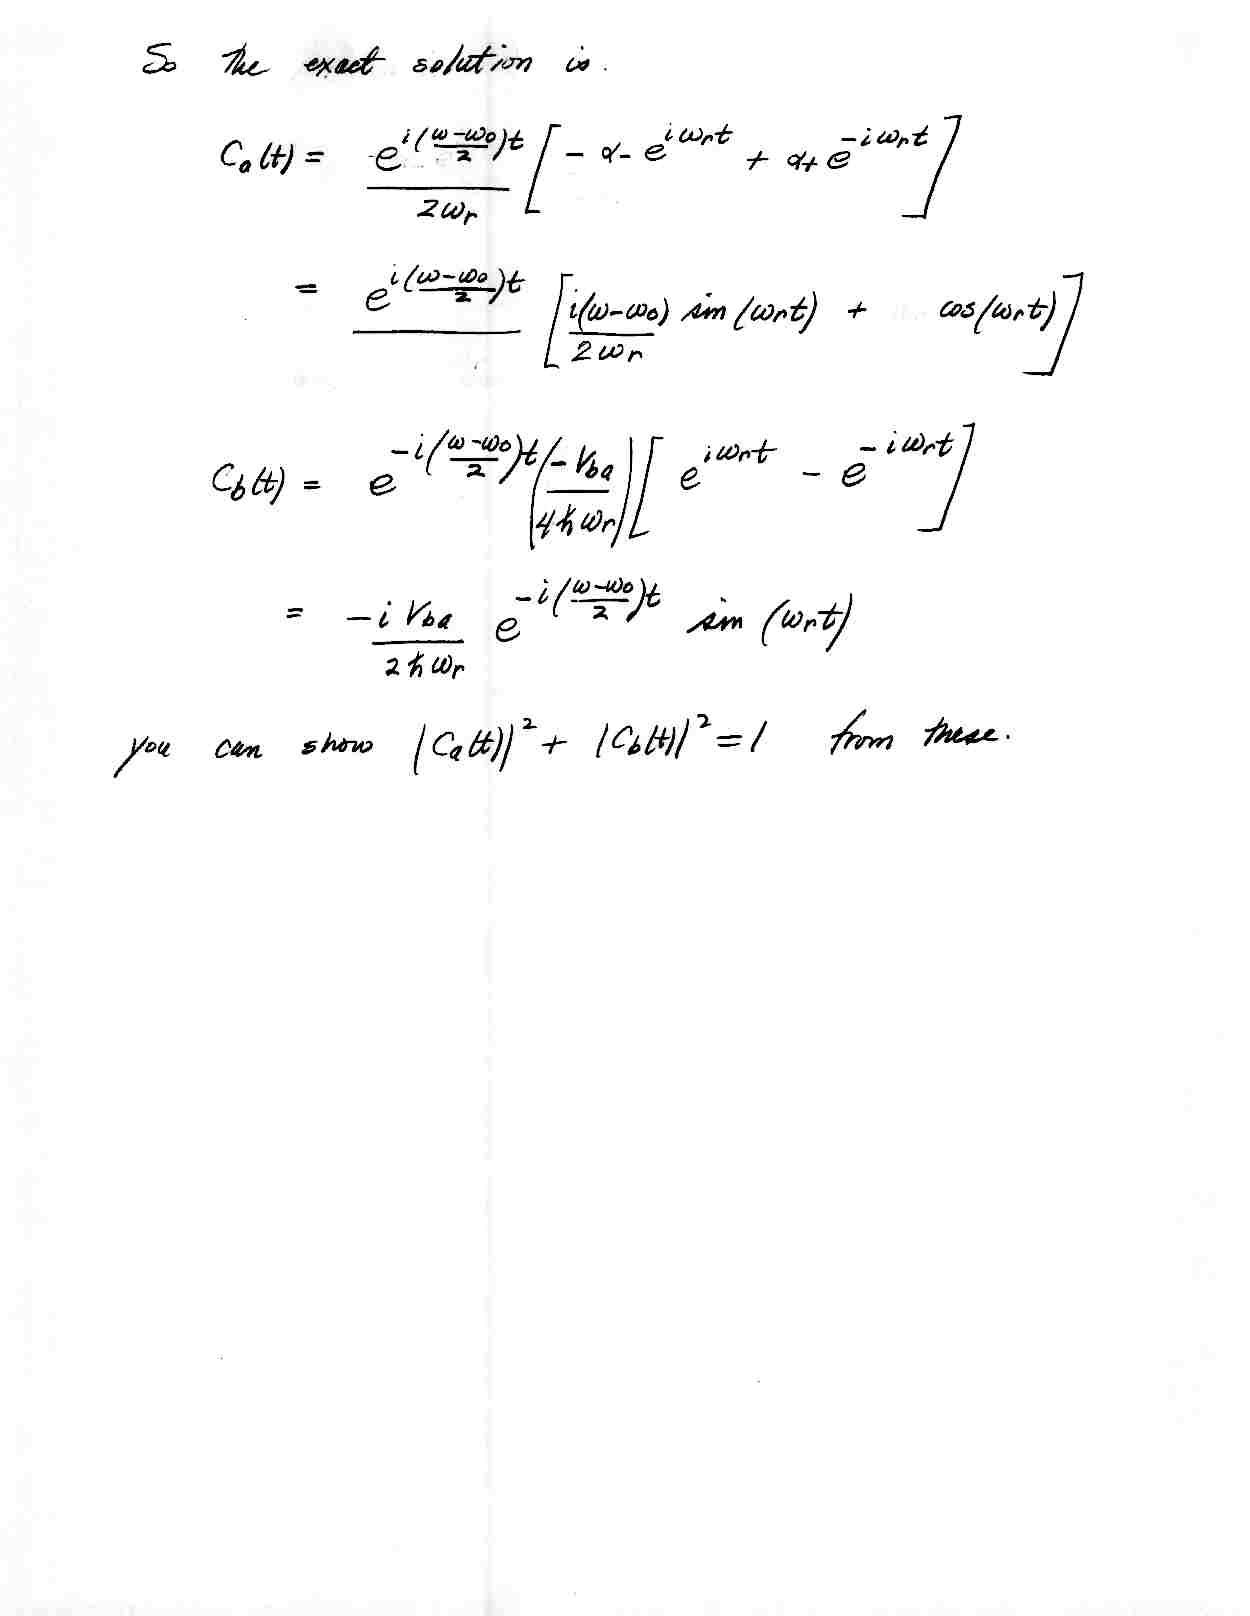 So the exact solution is.
Ca(t) = e^{i(ω-ω0/2)t}/2ωr [ - α- e^{iωrt} + α+ e^{-iωrt} ]
= e^{i(ω-ω0/2)t} [ i(ω-ω0)/2ωr sin(ωrt) + cos(ωrt) ]
Cb(t) = e^{-i(ω-ω0/2)t} (-Vba/4ħωr) [ e^{iωrt} - e^{-iωrt} ]
= -i Vba/2ħωr e^{-i(ω-ω0/2)t} sin(ωrt)
you can show |Ca(t)|² + |Cb(t)|² = 1 from these.